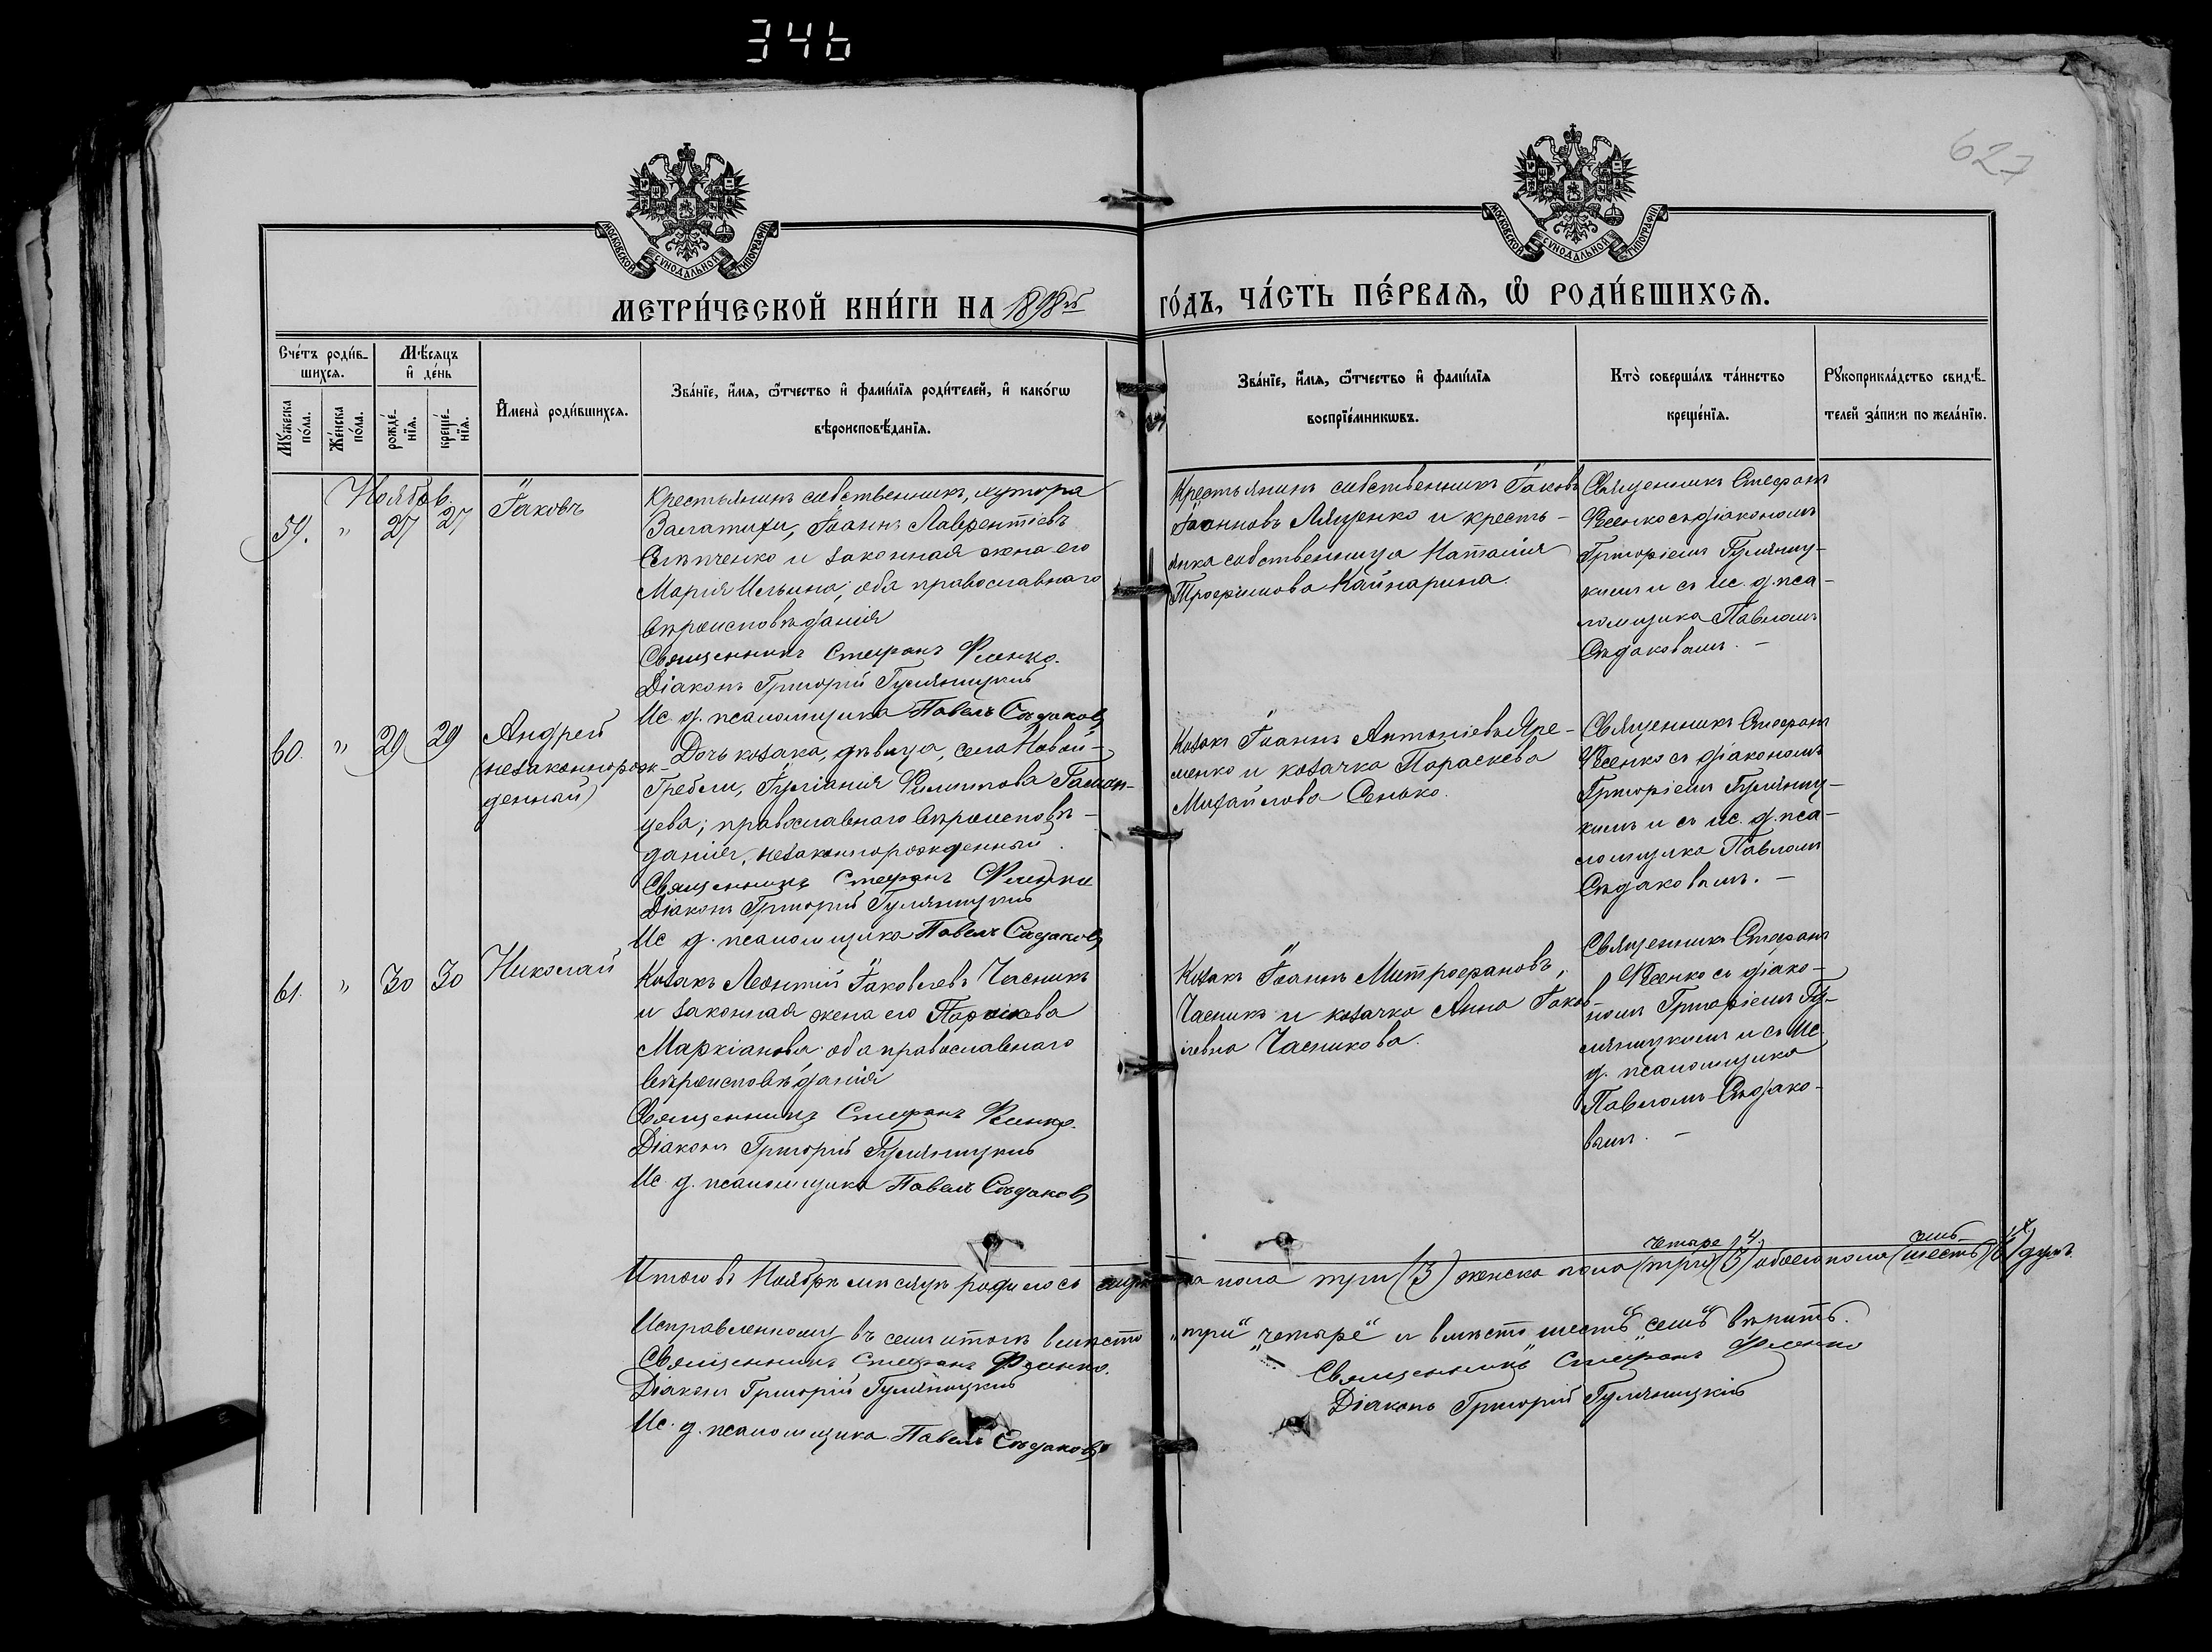 346
627
МОСКОВСКОЙ СѴНОДАЛЬНОЙ ТИПОГРАФІИ
МОСКОВСКОЙ СѴНОДАЛЬНОЙ ТИПОГРАФІИ
МЕТРИ́ЧЕСКОЙ КНИ́ГИ НА 1898й ГО́ДЪ, ЧА́СТЬ ПЕ́РВАЯ, Ѽ РОДИ́ВШИХСЯ.
Сче́тъ роди́в-
шихся.
Мѣ́сяцъ
и де́нь
Мꙋ́жеска по́ла.
Же́нска по́ла.
рожде́-
нїя.
креще́-
нїя.
И҆мена̀ роди́вшихся.
Зва́нїе, и҆́мя, ѻ҆́тчество и҆ фами́лїя роди́телей, и҆ како́гѡ
вѣроисповѣ́данїя.
Зва́нїе, и҆́мя, ѻ҆́тчество и҆ фами́лїя
воспрїе́мникѡвъ.
Кто̀ соверша́лъ та́инство
креще́нїя.
Рꙋкоприкла́дство свидѣ́-
телей за́писи по жела́нїю.
Ноябр.
59. " 27 27
Іаковъ
Крестьянинъ собственникъ, хутора
Заглатихи, Іоаннъ Лаврентіевъ
Слѣпченко и законная жена его
Марія Ильина; оба православнаго
вѣроисповѣданія
Священникъ Стефанъ Фесенко.
Діаконъ Григорій Гумяницкій
Ис. д. псаломщика Павелъ Сѣдаковъ
Крестьянинъ собственникъ Іаковъ
Іоанновъ Ляшенко и кресть-
янка собственница Наталія
Трофимова Кайнарина.
Священникъ Стефанъ
Фесенко съ діакономъ
Григоріемъ Гумяниц-
кимъ и съ ис. д. пса-
ломщика Павломъ
Сѣдаковымъ. -
60. " 29 29
Андрей
(незаконнорож-
денный)
Дочь козака, дѣвица, села Новой-
Гребли, Іуліанія Филиппова Галан-
цева; православнаго вѣроисповѣ-
данія, незаконнорожденный.
Священникъ Стефанъ Фесенко
Діаконъ Григорій Гумяницкій
Ис д. псаломщика Павелъ Сѣдаковъ
Козакъ Іоаннъ Антоніевъ Яре-
менко и козачка Параскева
Михайлова Сенько.
Священникъ Стефанъ
Фесенко съ діакономъ
Григоріемъ Гумяниц-
кимъ и съ ис. д. пса-
ломщика Павломъ
Сѣдаковымъ. -
61. " 30 30
Николай
Козакъ Леонтій Іаковлевъ Часникъ
и законная жена его Параскева
Маркіанова оба православнаго
вѣроисповѣданія
Священникъ Стефанъ Фесенко.
Діаконъ Григорій Гумяницкій
Ис д. псаломщика Павелъ Сѣдаковъ
Козакъ Іоаннъ Митрофановъ
Часникъ и козачка Анна Іаков-
левна Часникова.
Священникъ Стефанъ
Фесенко съ діако-
номъ Григоріемъ Гу-
мяницкимъ и съ ис.
д. псаломщика
Павломъ Сѣдако-
вымъ. -
четыре 4. семь 7.
Итого въ Ноябрѣ мѣсяцѣ родилось мужска пола три (3) женска пола (три) (3) обоего пола (шесть) (6) душъ.
Исправленному въ семъ итогѣ вмѣсто „три" „четыре" и вмѣсто шесть „семь" вѣрить.
Священникъ Стефанъ Фесенко.
Діаконъ Григорій Гумяницкій
Ис. д. псаломщика Павелъ Сѣдаковъ
Священникъ Стефанъ Фесенко
Діаконъ Григорій Гумяницкій